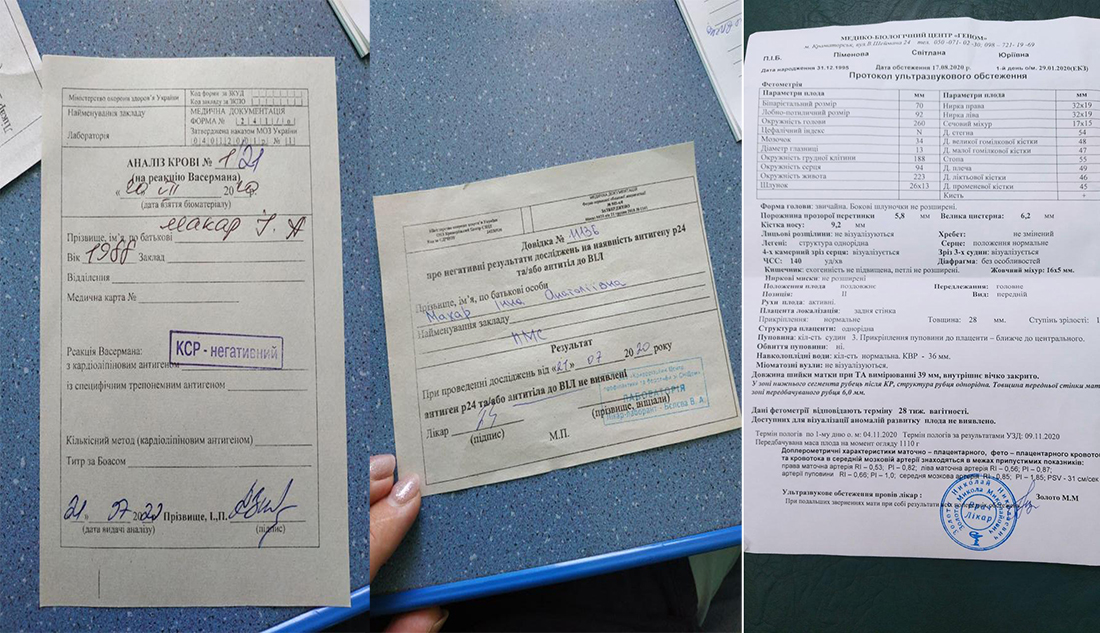 Міністерство охорони здоров'я України
Код форми за ЗКУД
Код закладу за ЗКПО
Найменування закладу
МЕДИЧНА ДОКУМЕНТАЦІЯ
ФОРМА №
Лабораторія
Затверджена наказом МОЗ України
АНАЛІЗ КРОВІ № 1 21
(на реакцію Васермана)
(дата взяття біоматеріалу)
Прізвище, ім'я, по батькові Макар І. А
Вік 1988 Заклад
Відділення
Медична карта №
Реакція Васермана:
з кардіоліпіновим антигеном КСР - негативний
із специфічним трепонемним антигеном
Кількісний метод (кардіоліпіновим антигеном)
Титр за Боасом
21 » 07 2020 Прізвище, І.,П.
(дата видачі аналізу) (підпис)
МЕДИЧНА ДОКУМЕНТАЦІЯ
ЗАТВЕРДЖЕНО
Довідка № 1136
про негативні результати досліджень на наявність антигену р24
та/або антитіл до ВІЛ
Прізвище, ім'я, по батькові особи
Макар Інна Анатоліївна
Найменування закладу
ПМС
Результат
При проведенні досліджень від «21» 07 2020 року
антиген р24 та/або антитіла до ВІЛ не виявлені
Лікар
(підпис) (прізвище, ініціали)
М.П.
ЛАБОРАТОРІЯ
МЕДИКО-БІОЛОГІЧНИЙ ЦЕНТР «ГЕНОМ»
П.І.Б. Піменова Світлана Юріївна
Дата народження 31.12.1995 Дата обстеження 17.08.2020 р. 1-й день о/м. 29.01.2020(ЕКЗ)
Протокол ультразвукового обстеження
Фетометрія
Параметри плода мм Параметри плода мм
Біпарієтальний розмір 70 Нирка права 32х19
Лобно-потиличний розмір 92 Нирка ліва 32х19
Окружність голови 260 Сечовий міхур 17х15
Цефалічний індекс N Д. стегна 54
Мозочок 34 Д. великої гомілкової кістки 48
Діаметр глазниці 13 Д. малої гомілкової кістки 47
Окружність грудної клітини 188 Стопа 55
Окружність серця 94 Д. плеча 49
Окружність живота 223 Д. ліктьової кістки 46
Шлунок 26х13 Д. променевої кістки 45
Кисть +
Форма голови: звичайна. Бокові шлуночки не розширені.
Порожнина прозорої перетинки 5,8 мм Велика цистерна: 6,2 мм
Кістка носу: 9,2 мм
Лицьові розщілини: не візуалізуються Хребет: не змінений
Легені: структура однорідна Серце: положення нормальне
4-х камерний зріз серця: візуалізується Зріз 3-х судин: візуалізується
ЧСС: 140 уд/хв Діафрагма: без особливостей
Кишечник: ехогенність не підвищена, петлі не розширені. Жовчний міхур: 16х5 мм.
Ниркові миски: не розширені
Положення плода поздовжне Передлежання: головне
Позиція: ІІ Вид: передній
Рухи плода: активні.
Плацента локалізація: задня стінка
Прикріплення: нормальне Товщина: 28 мм. Ступінь зрілості:
Структура плаценти: однорідна
Пуповина: кіл-сть судин 3. Прикріплення пуповини до плаценти – ближче до центрального.
Обвиття пуповини: ні.
Навколоплідні води: кіл-сть нормальна. КВР - 36 мм.
Міоматозні вузли: не візуалізуються.
Довжина шийки матки при ТА вимірюванні 39 мм, внутрішнє вічко закрито.
У зоні нижнього сегмента рубець після КР, структура рубця однорідна. Товщина передньої стінки
зоні передбачуваного рубця 6,0 мм.
Дані фетометрії відповідають терміну 28 тиж. вагітності.
Доступних для візуалізації аномалій развитку плода не виявлено.
Термін пологів по 1-му дню о. м: 04.11.2020 Термін пологів за результатами УЗД: 09.11.2020
Передбачувана маса плода на момент огляду 1110 г
Допплерометричні характеристики маточно – плацентарного, фето – плацентарного
та кровотока в середній мозковій артерії знаходяться в межах припустимих показників:
права маточна артерія RI – 0,53; PI – 0,82; ліва маточна артерія RI – 0,56; PI – 0,87;
артерії пуповини RI – 0,66; PI – 1,0; середня мозкова артерія RI – 0,85; PI – 1,85; PSV - 31 см/сек
Ультразвукове обстеження провів лікар: Золото М.М
Лікар